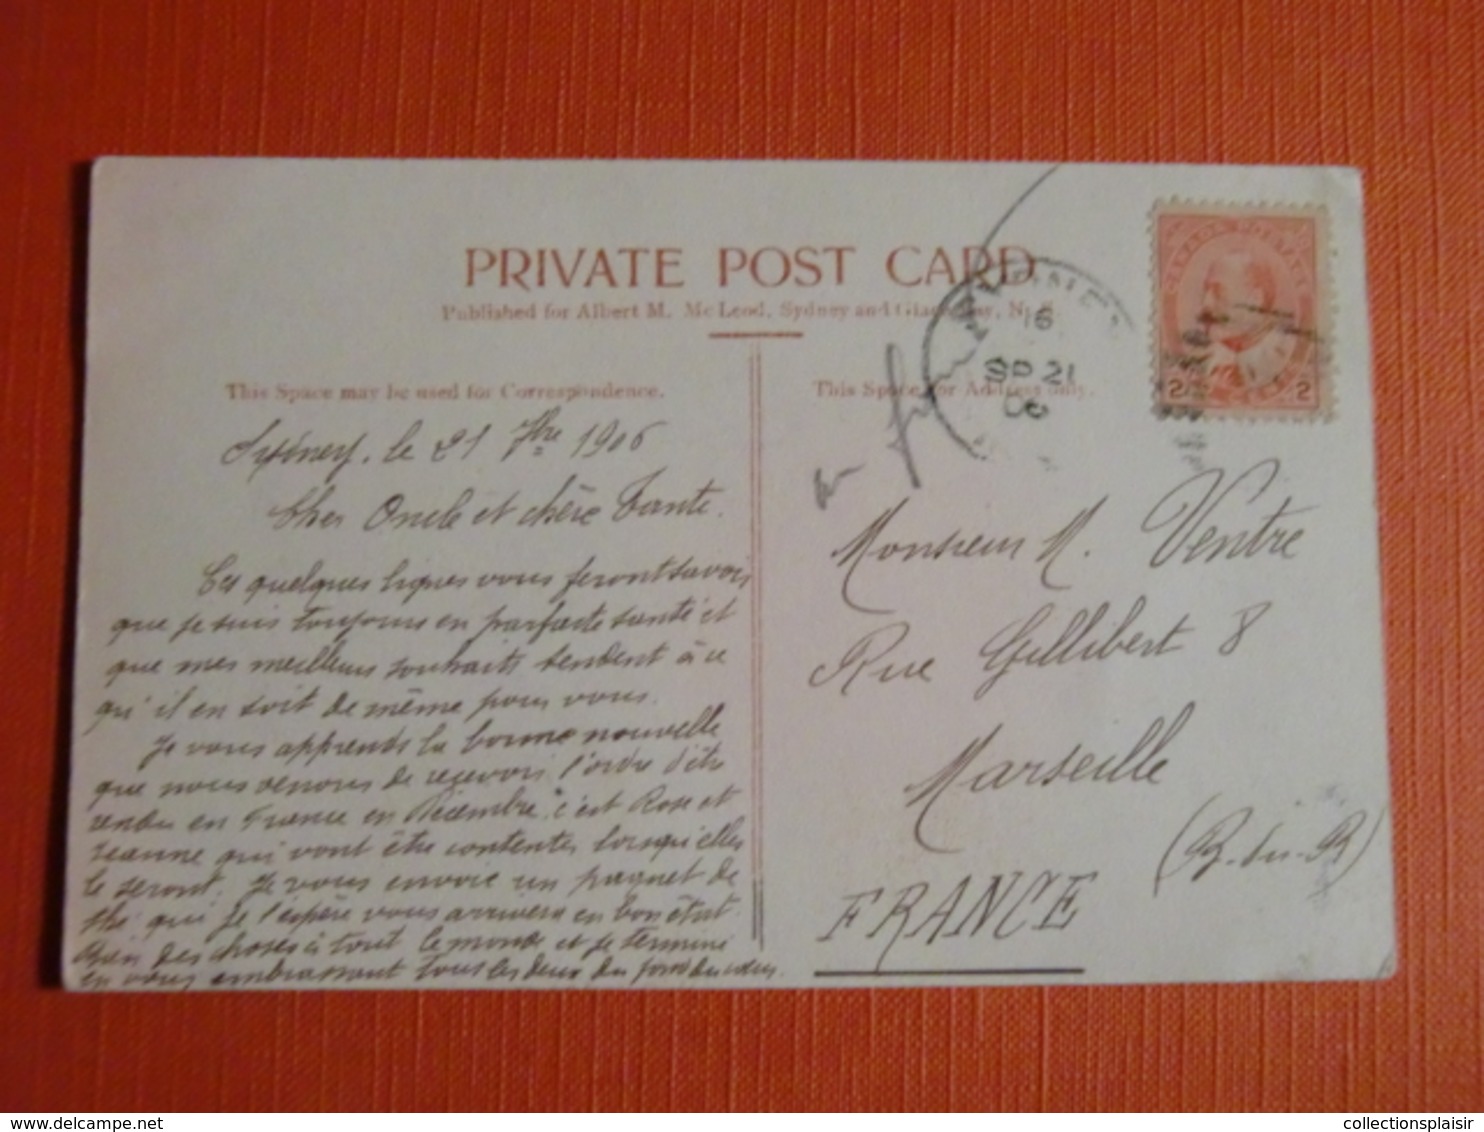 PRIVATE POST CARD
Published for Albert M. McLeod, Sydney and Glace Bay, N. S.
This Space may be used for Correspondence.
This Space for Address only.
SYDNEY
16
SP 21
06
2 2
Sydney, le 21 7bre 1906
Cher Oncle et chère Tante.
Ces quelques lignes vous feront savoir
que je suis toujours en parfaite santé et
que mes meilleurs souhaits tendent à ce
qu'il en soit de même pour vous.
Je vous apprends la bonne nouvelle
que nous venons de recevoir l'ordre d'être
rendu en France en Décembre, c'est Rose et
Jeanne qui vont être contentes lorsqu'elles
le seront. Je vous envoie un paquet de
thé qui je l'espère vous arrivera en bon état.
Bien des choses à tout le monde et je termine
en vous embrassant tous les deux du fond du cœur.
Monsieur M. Ventre
Rue Gillibert 8
Marseille
(B-du-R)
FRANCE
collectionsplaisir